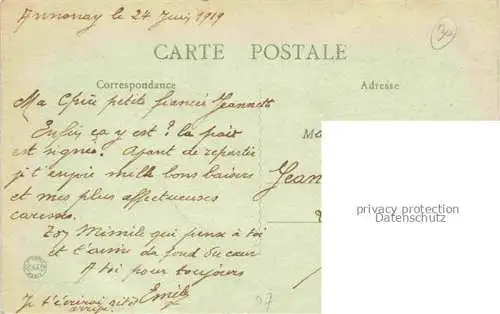 Annonay le 24 Juin 1919
CARTE POSTALE
Correspondance
Adresse
Ma Chère petite fiancée Jeannette
Enfin ça y est ? la paix
est signée. Avant de repartir
je t'envoie mille bons baisers
et mes plus affectueuses
caresses.
Ton Mimile qui pense à toi
et t'aime du fond du cœur
A toi pour toujours
Emile
Je t'écrirai sitôt
arrivé.
Jean
privacy protection
Datenschutz